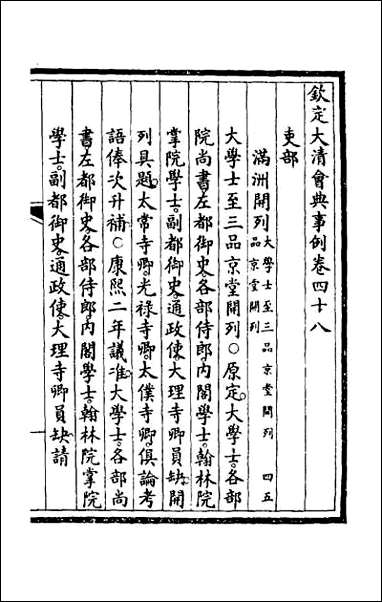 欽定大清會典事例卷四十八
吏部
滿洲開列 大學士至三品京堂開列 四五
品京堂開列
大學士至三品京堂開列○原定。大學士。各部
院尚書。左都御史。各部侍郎。內閣學士。翰林院
掌院學士。副都御史。通政使。大理寺卿員缺。開
列具題。太常寺卿。光祿寺卿。太僕寺卿。俱論考
語俸次升補○康熙二年議准。大學士。各部尚
書。左都御史。各部侍郎。內閣學士。翰林院掌院
學士。副都御史。通政使。大理寺卿員缺。請